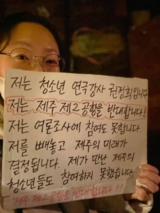 저는 청소년 연극강사 권정희입니다
저는 제주 제2공항을 반대합니다!
저는 여론조사에 참여도 못합니다
저를 빼놓고 제주의 미래가
결정됩니다. 제가 만난 제주의
청소년들도 참여하지 못했습니다
제주 제2공항을 반대합니다!!